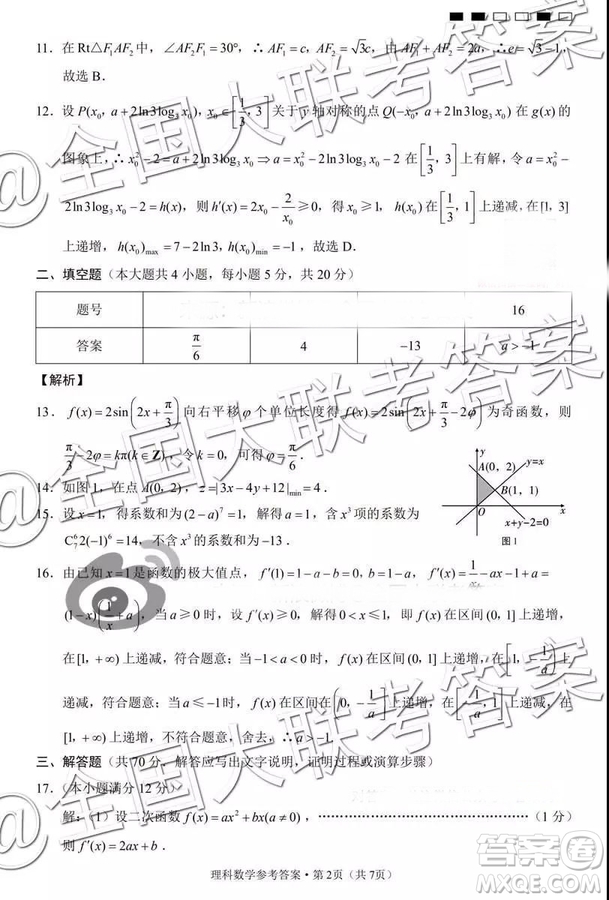 11．在 Rt△F₁AF₂ 中，∠AF₂F₁ = 30°，∴AF₁ = c，AF₂ = √3c，由 AF₁ + AF₂ = 2a，∴e = √3 − 1．
故选 B．
12．设 P(x₀, a + 2ln3log₃x₀)，x₀ ∈ [1/3, 3] 关于 y 轴对称的点 Q(−x₀, a + 2ln3log₃x₀) 在 g(x) 的
图象上，∴x₀² − 2 = a + 2ln3log₃x₀ ⇒ a = x₀² − 2ln3log₃x₀ − 2 在 [1/3, 3] 上有解，令 a = x₀² −
2ln3log₃x₀ − 2 = h(x)，则 h′(x) = 2x₀ − 2/x₀ ≥ 0，得 x₀ ≥ 1，h(x) 在 [1/3, 1] 上递减，在 [1, 3]
上递增，h(x₀)max = 7 − 2ln3，h(x₀)min = −1，故选 D．
二、填空题（本大题共 4 小题，每小题 5 分，共 20 分）
题号 16
答案 π/6 4 −13 a > −1
【解析】
13．f(x) = 2sin(2x + π/3) 向右平移 φ 个单位长度得 f(x) = 2sin(2x + π/3 − 2φ) 为奇函数，则
π/3 − 2φ = kπ(k ∈ Z)，令 k = 0，可得 φ = π/6．
14．如图 1，在点 A(0, 2)，z = |3x − 4y + 12|min = 4．
15．设 x = 1，得系数和为 (2 − a)⁷ = 1，解得 a = 1，含 x³ 项的系数为
C₇⁶2(−1)⁶ = 14，不含 x³ 的系数和为 −13．
y
A(0, 2)
y=x
B(1, 1)
O
x
x+y-2=0
图 1
16．由已知 x = 1 是函数的极大值点，f′(1) = 1 − a − b = 0, b = 1 − a，f′(x) = 1/x − ax − 1 + a =
(1 − x)(1/x + a)，当 a ≥ 0 时，设 f′(x) ≥ 0，解得 0 < x ≤ 1，即 f(x) 在区间 (0, 1) 上递增，
在 [1, +∞) 上递减，符合题意；当 −1 < a < 0 时，f(x) 在区间 (0, 1) 上递增，在 [1, −1/a] 上
递减，符合题意；当 a ≤ −1 时，f(x) 在区间 (0, −1/a] 上递增，在区间 [−1/a, 1] 上递减，在
[1, +∞) 上递增，不符合题意，舍去，∴a > −1．
三、解答题（共 70 分．解答应写出文字说明，证明过程或演算步骤）
17．（本小题满分 12 分）
解：（1）设二次函数 f(x) = ax² + bx(a ≠ 0)，……………………………………（1 分）
则 f′(x) = 2ax + b．
理科数学参考答案·第 2 页（共 7 页）
@全国大联考答案
@全国大联考答案
@全国大联考答案
答案圈
MXQE.COM